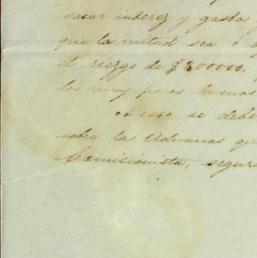 sacar interez y gastos
que la mitad sea ó
el riezgo de $300000.
los muy pocos buenos
Acaso se debe
sobre las Aduanas que
Comisionista, segur